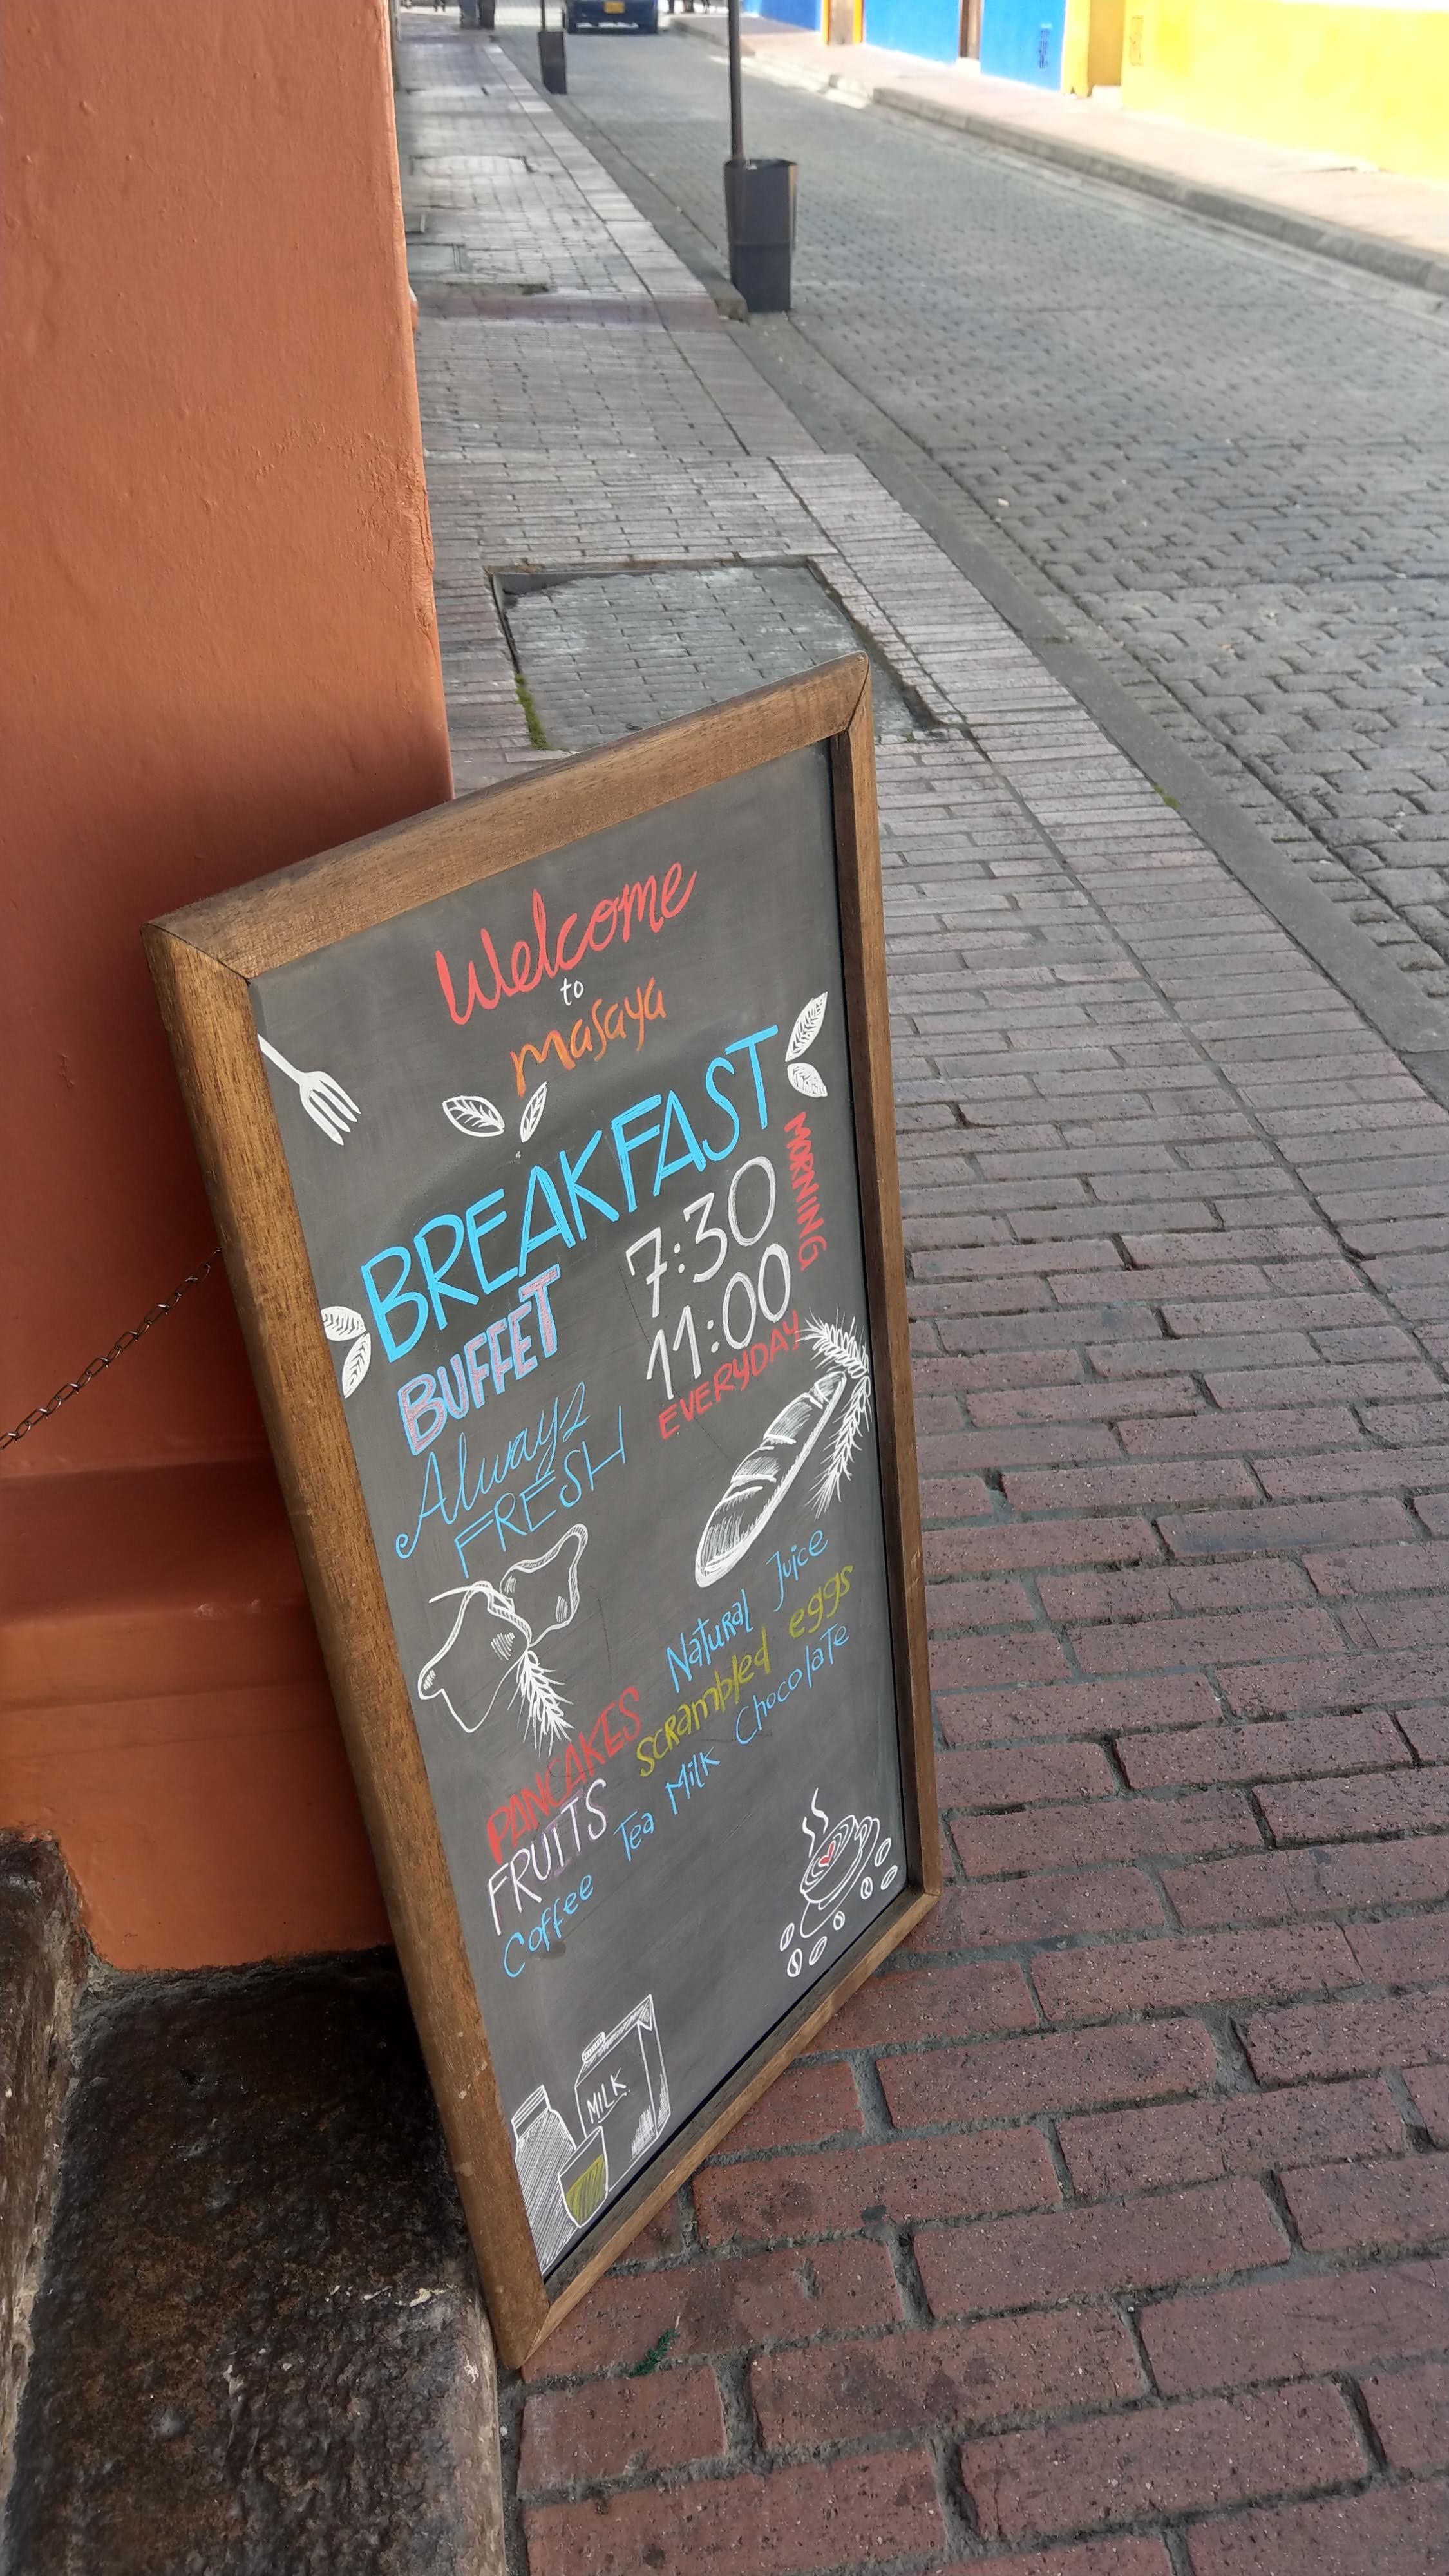 Welcome
to
masaya
BREAKFAST
BUFFET
7:30
11:00
MORNING
EVERYDAY
Always
FRESH
Natural Juice
PANCAKES scrambled eggs
FRUITS
Coffee Tea Milk Chocolate
MILK